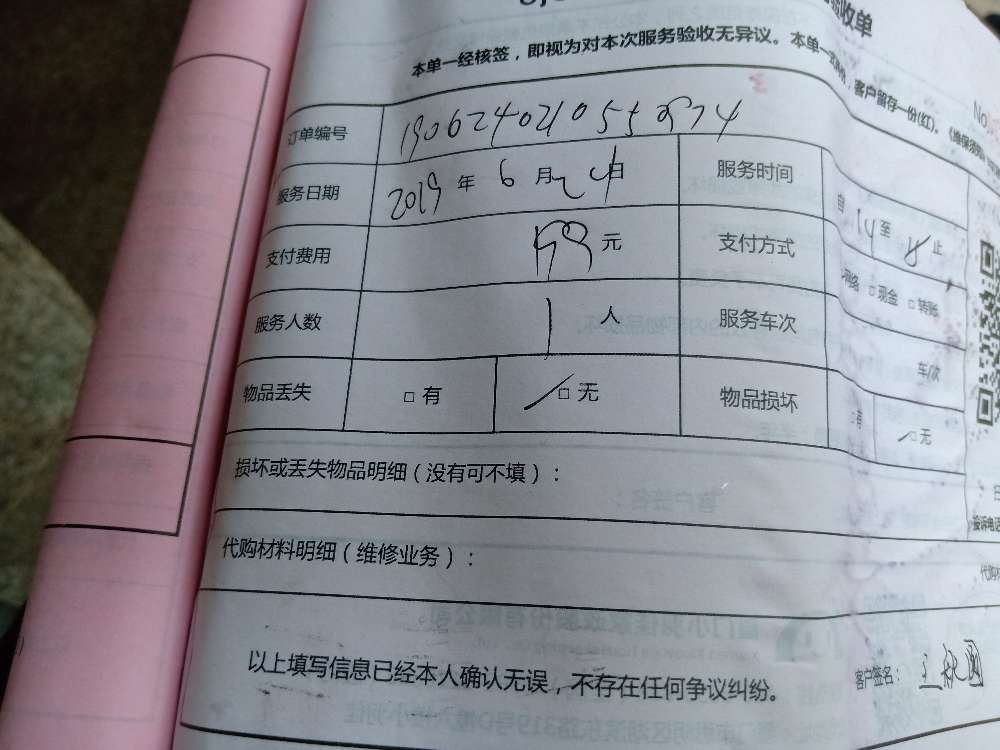 验收单
本单一经核签，即视为对本次服务验收无异议。本单一式两份，客户留存一份(红)。
No
订单编号 190624021055
服务日期 2019 年 6 月 24 日 服务时间 自 14 至 18 止
支付费用 元 支付方式 网络 □ 现金 □ 转账
服务人数 1 人 服务车次 车/次
物品丢失 □ 有 □ 无 物品损坏 □ 有 □ 无
损坏或丢失物品明细（没有可不填）：
投诉电话
代购材料明细（维修业务）：
代购
以上填写信息已经本人确认无误，不存在任何争议纠纷。
客户签名：